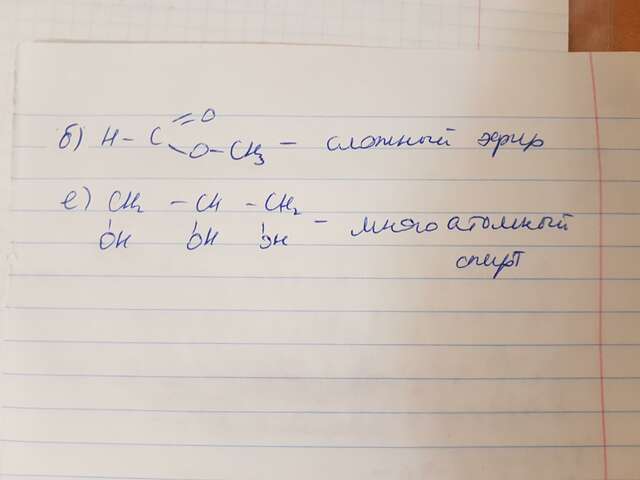 =O
б) H-C
O-CH₃ - сложный эфир
е) CH₂ - CH - CH₂
OH OH OH - многоатомный
спирт